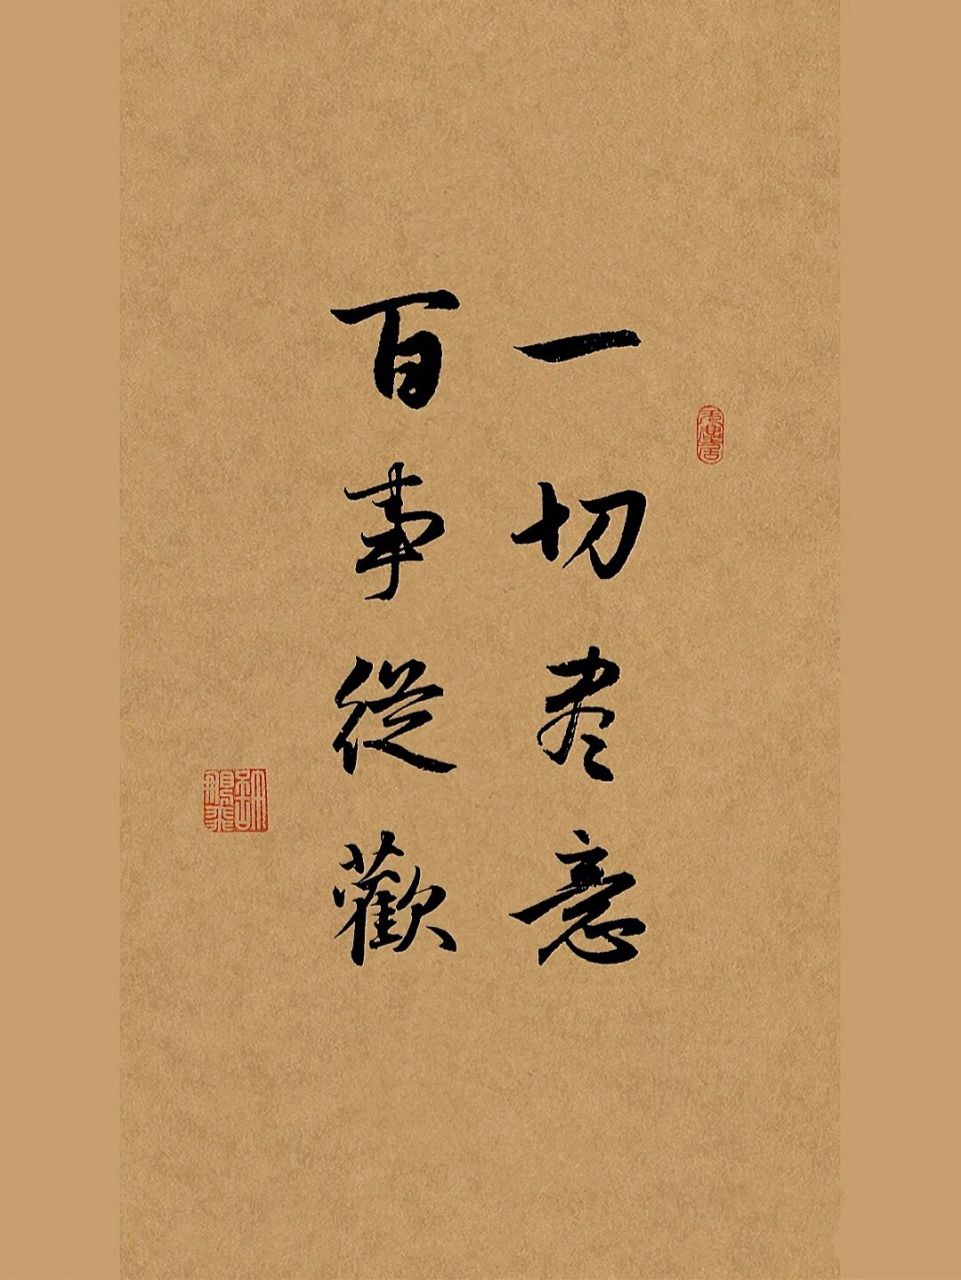 一切尽意
百事從歡